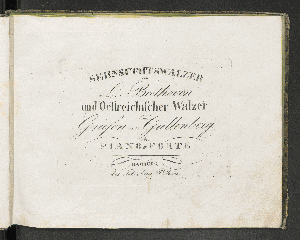 SEHNSUCHTSWALZER
L. v. Beethoven
und Oestreichischer Walzer
Grafen v. Gallenberg
PIANO-FORTE
HAMBURG